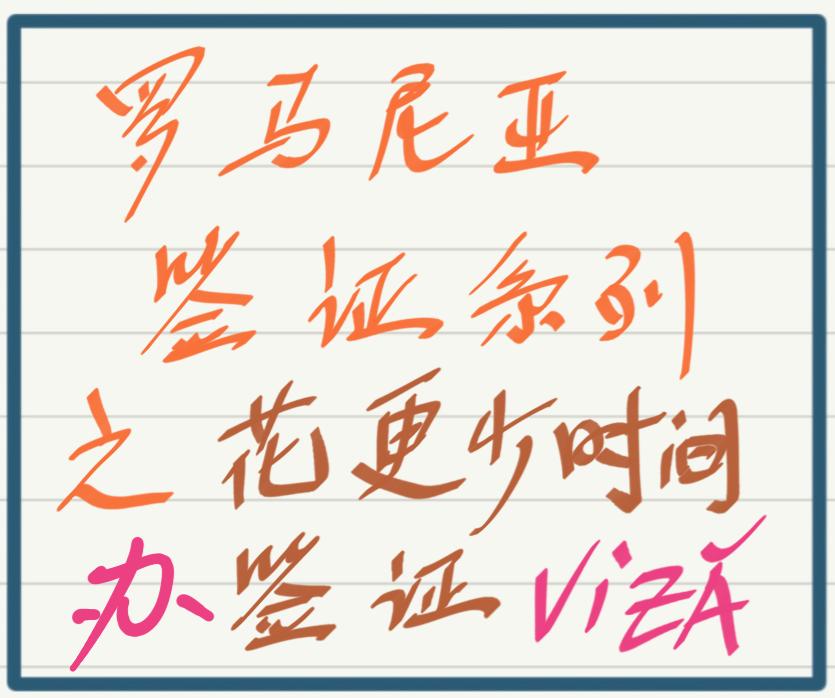 罗马尼亚
签证系列
之花更少时间
办签证 VIZĂ